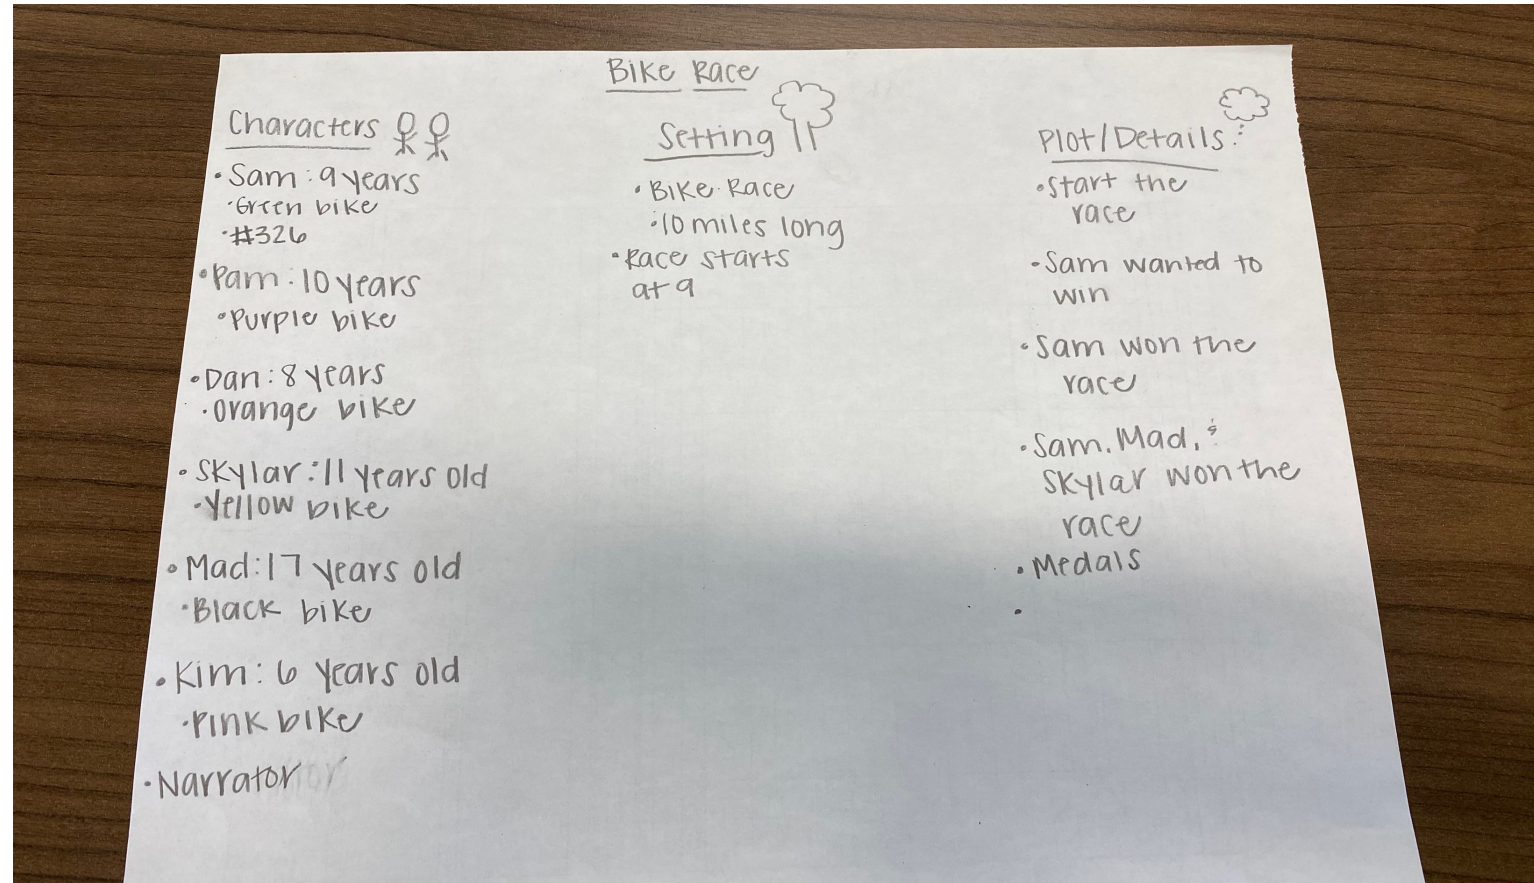 Bike Race
Characters
• Sam: 9 years
• Green bike
• #326
• Pam: 10 years
• Purple bike
• Dan: 8 years
• Orange bike
• Skylar: 11 years old
• Yellow bike
• Mad: 17 years old
• Black bike
• Kim: 6 years old
• Pink bike
• Narrator
Setting
• Bike Race
• 10 miles long
• Race starts
at 9
Plot/Details:
• Start the
race
• Sam wanted to
win
• Sam won the
race
• Sam, Mad, &
Skylar won the
race
• Medals
•